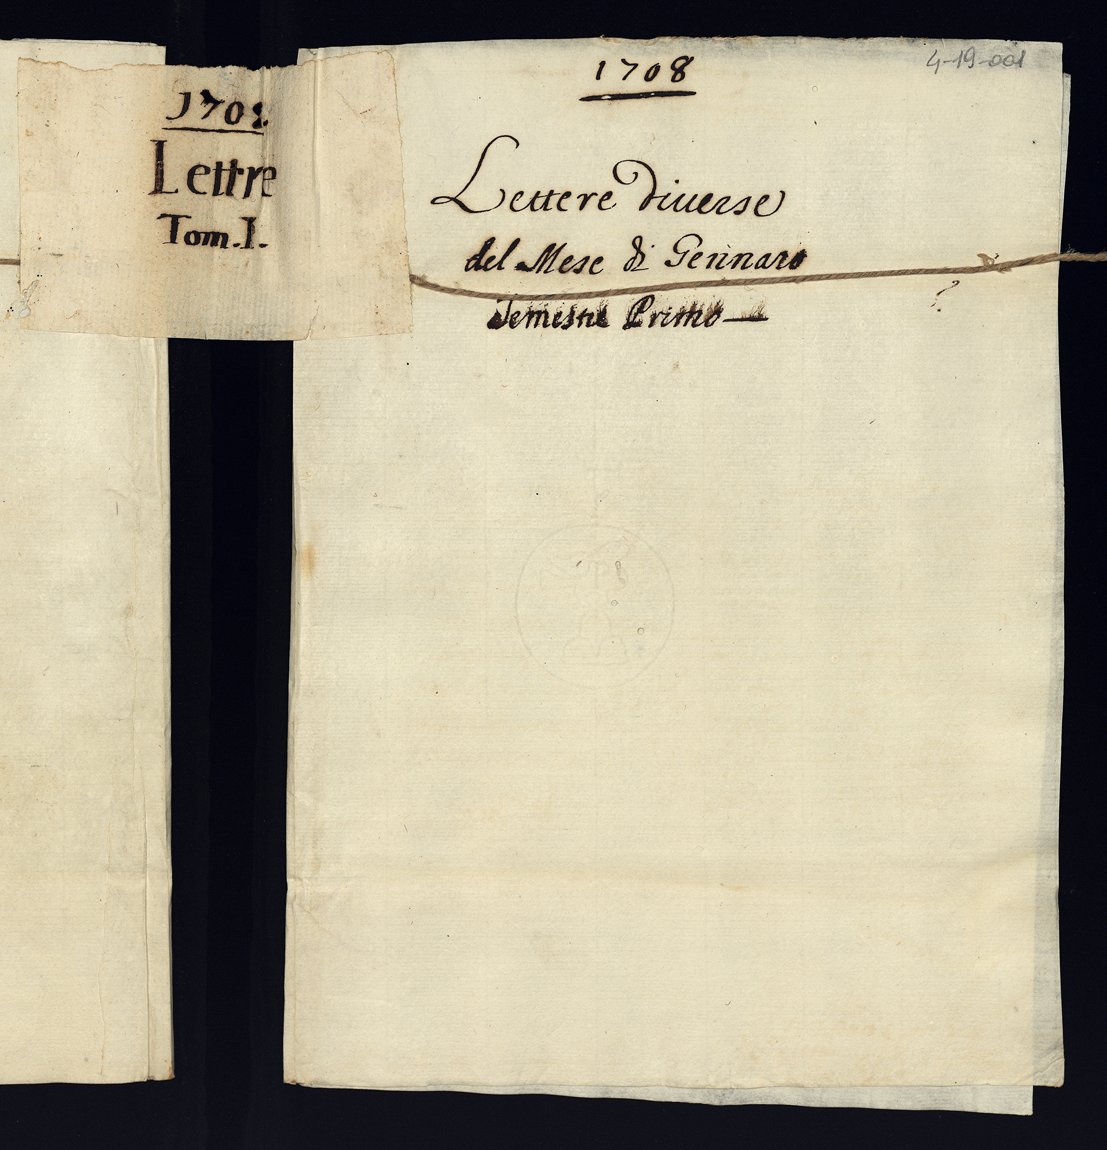 1708
Lettre
Tom. I.
4-19-001
1708
Lettere diverse
del Mese di Gennaro
Semestre Primo
?